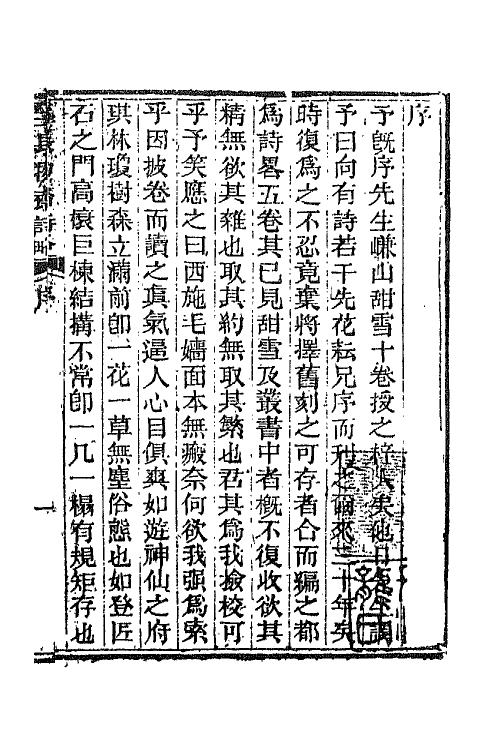 序
予既序先生嵰山甜雪十卷授之梓人矣他日先生謂
予曰向有詩若干先花耘兄序而刊之爾來三十年矣
時復為之不忍竟棄將擇舊刻之可存者合而編之都
為詩畧五卷其已見甜雪及叢書中者概不復收欲其
精無欲其雜也取其約無取其繁也君其為我撿校可
乎予笑應之曰西施毛嬙面本無瘢奈何欲我强為索
乎因披卷而讀之真氣逼人心目俱爽如遊神仙之府
琪林瓊樹森立滿前卽一花一草無塵俗態也如登匠
石之門高榱巨棟結搆不常卽一几一榻有規矩存也
詩略
序
一